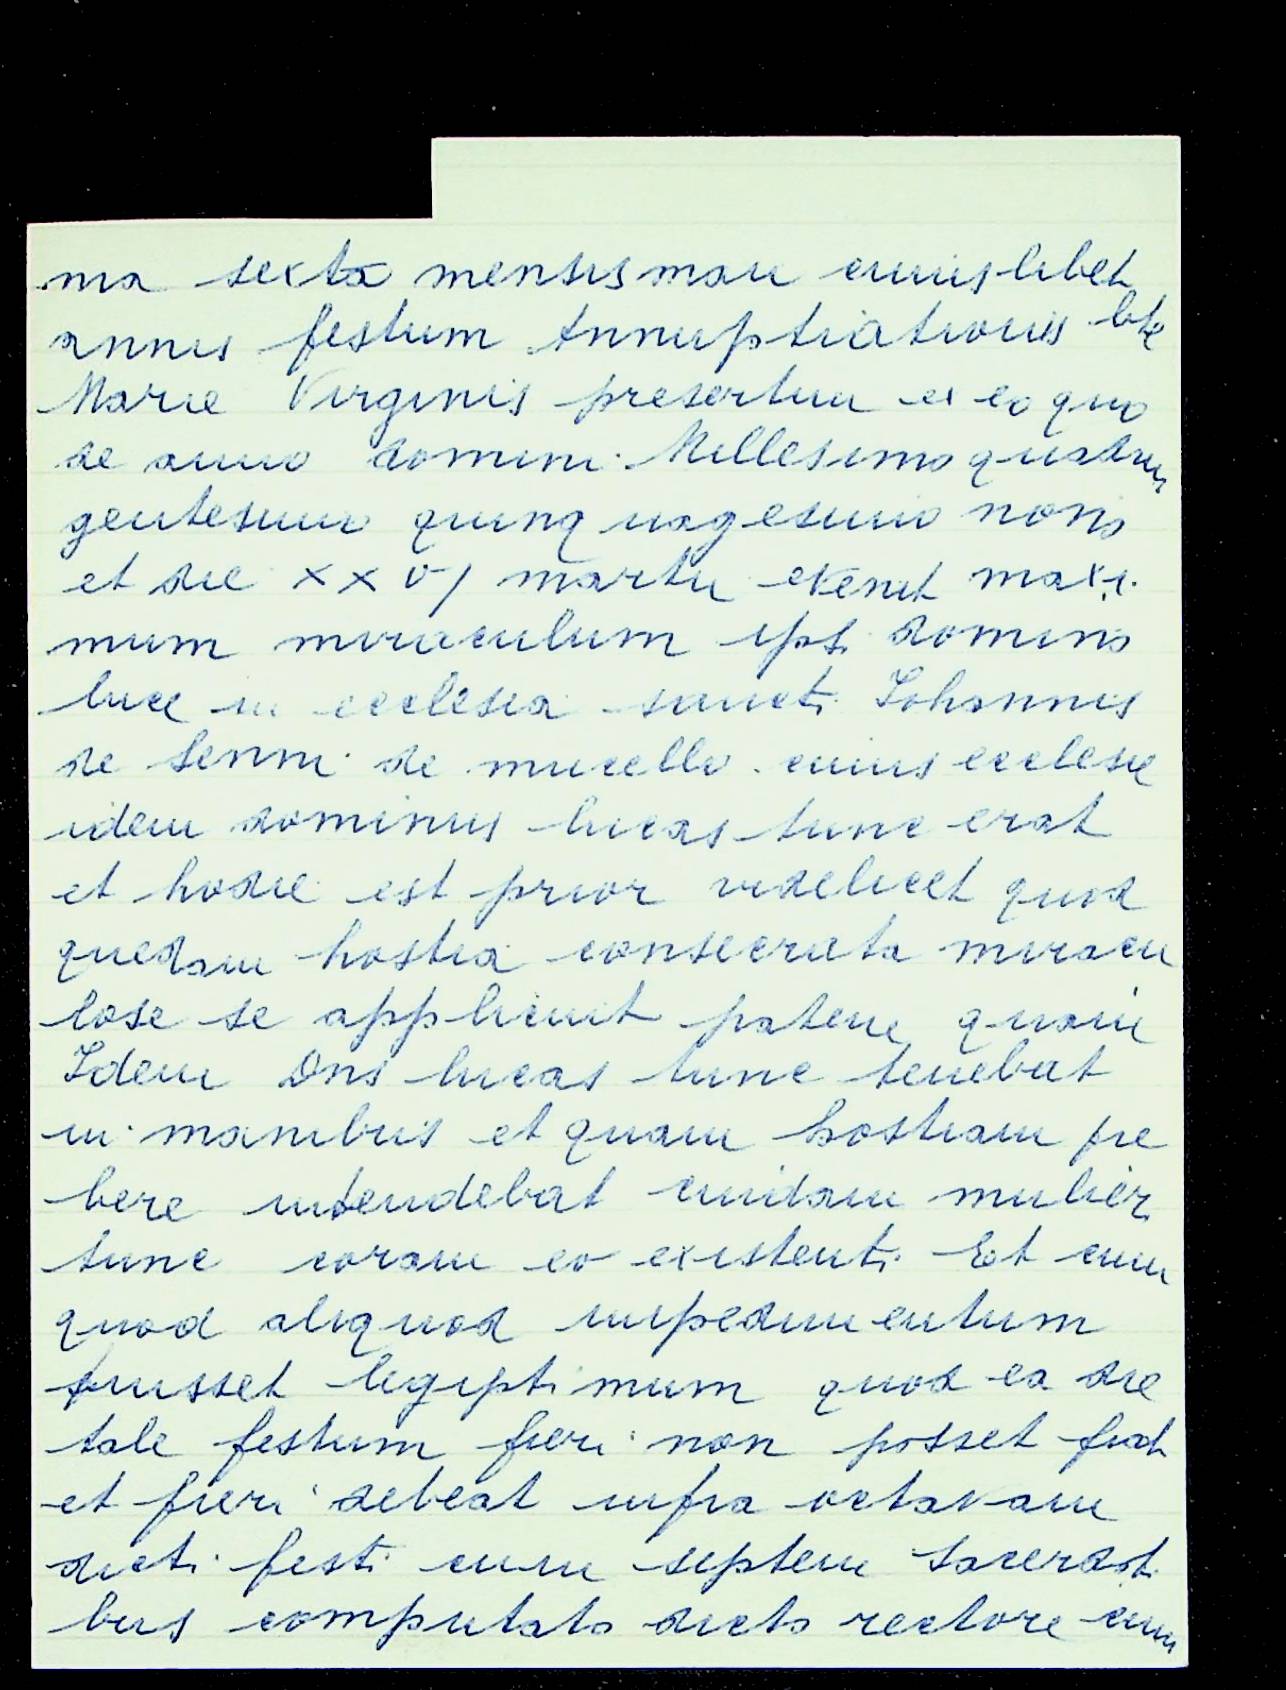 ma sexta mensis marii cuiuslibet
annis festum Annuptiationis bte
Marie Virginis presertim ex eo quo
de anno domini Millesimo quatrin
gentesimo quinquagesimo nono
et die XXVJ martii evenit maxi
mum miraculum ipsi domino
luce in ecclesia sancti Iohannis
de Senni de mucello cuius ecclesie
idem dominus lucas tunc erat
et hodie est prior videlicet quod
quedam hostia consecrata miracu
lose se applicuit patene quam
Idem Dns lucas tunc tenebat
in manibus et quam hostiam pre
bere intendebat cuidam mulier
tunc coram eo existenti Et cum
quod aliquod impedimentum
fuisset legiptimum quod ea die
tale festum fieri non posset fiat
et fieri debeat infra octavam
dicti festi cum septem sacerdoti
bus computato dicto rectore cum